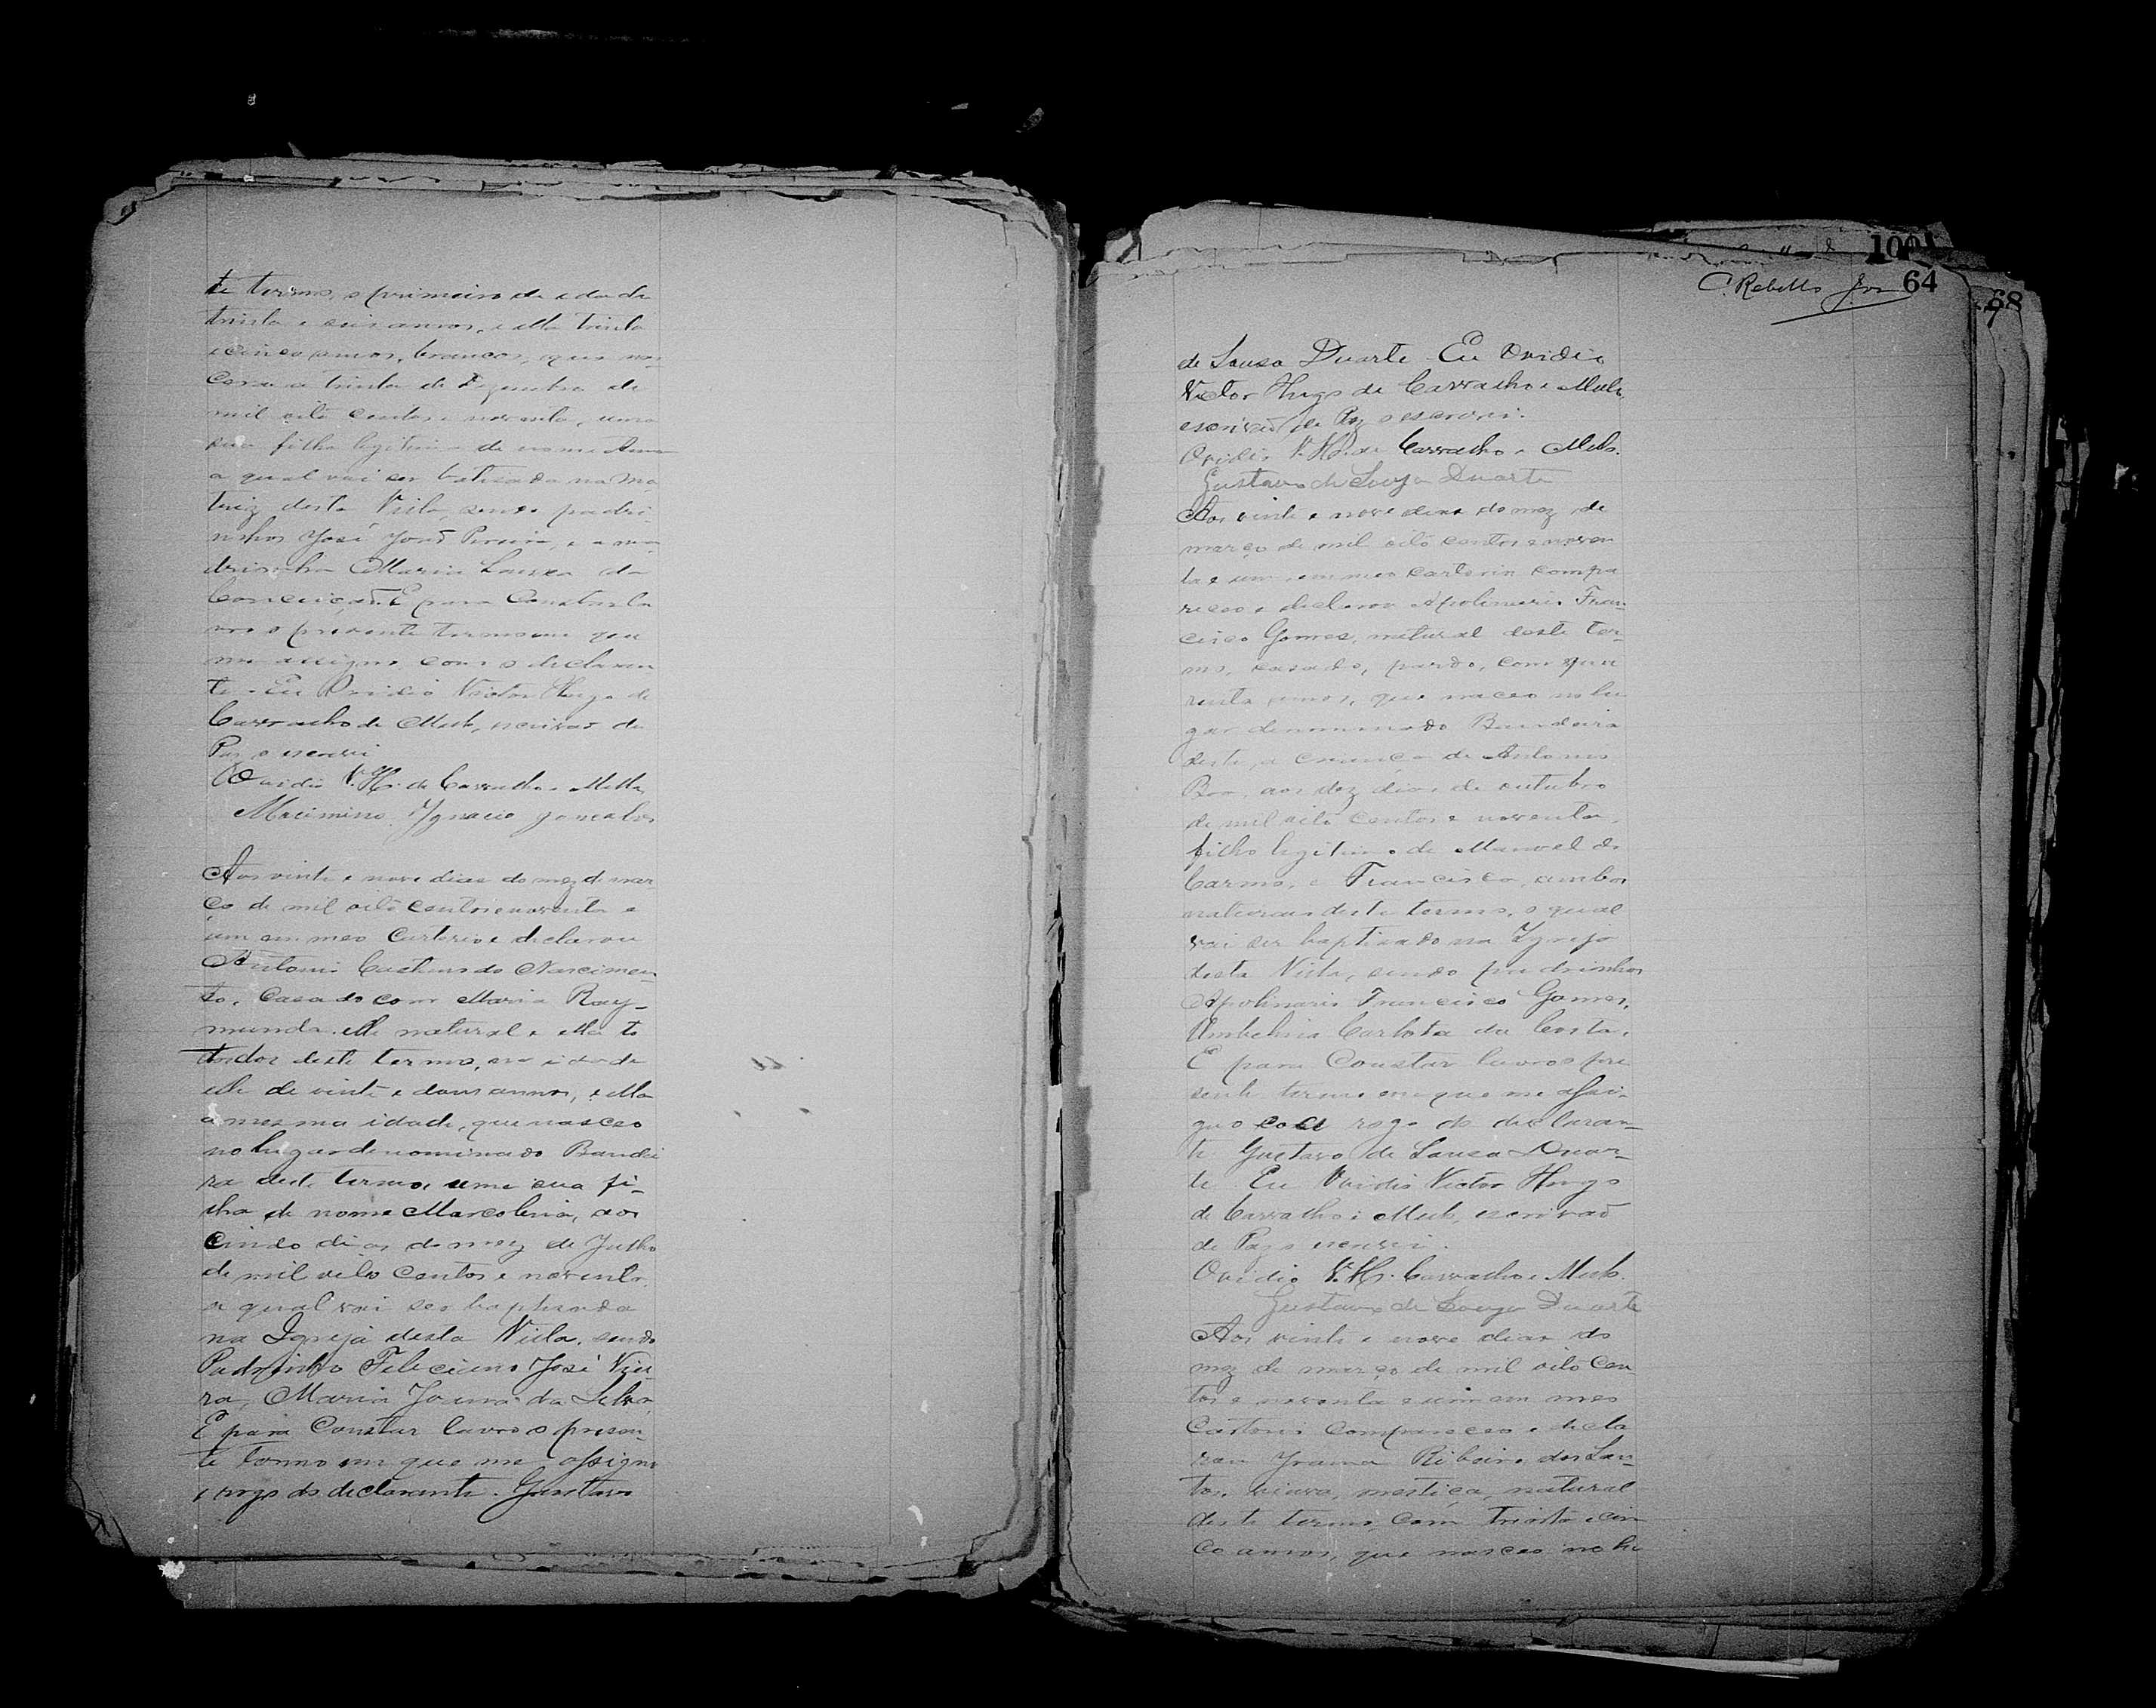 te termo, o primeiro de edade
trinta e seis annos, e ella trinta
e cinco annos, brancos, que nas
cera a trinta de Dezembro de
mil oito centos e noventa, uma
sua filha legitima de nome Anna
a qual vai ser batisada na Ma
triz desta Villa, sendo padri-
nhos José Pereira, e a ma
drinha Maria Louza da
Conceição. E para Constar la
vro o presente termo em que
me assigno, com o declaran
te. Eu Ovidio Victor Hugo de
Carvalho de Mello, escrivão de
Paz o escrevi
Ovidio V. H. de Carvalho e Mello
Maximino Ignacio Gonçalves
Aos vinte e nove dias do mez de mar
ço de mil oito centos e noventa e
um em meo Cartorio e declarou
Antonio Caetano do Nascimen
to, Casado com Maria Ray-
munda elle natural e ella to
todos deste termo, era idade
elle de vinte e dous annos, e ella
a mesma idade, que nasceo
no lugar denominado Bandei
ra deste termo, uma sua fi-
lha de nome Marcolina, aos
cinco dias do mez de Julho
de mil oito Centos e noventa
a qual vai ser baptisada
na Igreja desta Villa, sendo
Padrinho Feleciano José Viei
ra, Maria Joanna da Silva
E para Constar lavro o presen-
te termo em que me assigno
e rogo do declarante. Gustavo
100
C. Rebello 64
68
de Sousa Duarte Eu Ovidio
Victor Hugo de Carvalho e Mello
escrivão de Paz o escrevi.
Ovidio V. H. de Carvalho e Mello.
Gustavo de Souza Duarte
Aos vinte e nove dias do mez de
março de mil oito centos e noven
ta e um, em meo cartorio compa
receo e declarou Apolinario Fran-
cisco Gomes, natural deste ter-
mo, casado, pardo, com qua
renta annos, que naceo no lu
gar denominado Bandeira
deste, a criança de Antonio
aos dez dias de outubro
de mil oito centos e noventa,
filho legitimo de Manoel do
Carmo, e Francisca, ambos
naturaes deste termo, o qual
vai ser baptisado na Igreja
desta Villa, sendo padrinhos
Apolinario Francisco Gomes,
Umbelina Carlota da Costa.
E para Constar lavro o pre
sente termo em que me assi-
gno rogo do declaran-
te Gustavo de Sousa Duar-
te. Eu Ovidio Victor Hugo
de Carvalho e Mello, escrivão
de Paz o escrevi.
Ovidio V. H. Carvalho e Mello.
Gustavo de Souza Duarte
Aos vinte e nove dias do
mez de março de mil oito cen
tos e noventa e um em meo
Cartorio Compareceo e decla
rou Joanna Ribeiro dos San-
tos, viuva, mestiça, natural
deste termo, com trinta e cin
co annos, que nasceo no lu